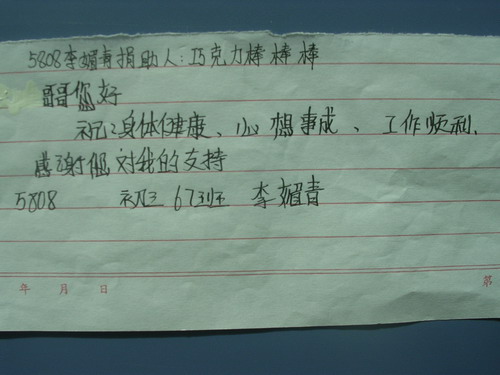 5808李媚青捐助人:巧克力棒棒棒
哥哥你好
祝:身体健康、心想事成、工作顺利.
感谢您对我的支持
5808 初三 67班 李媚青
年 月 日 第